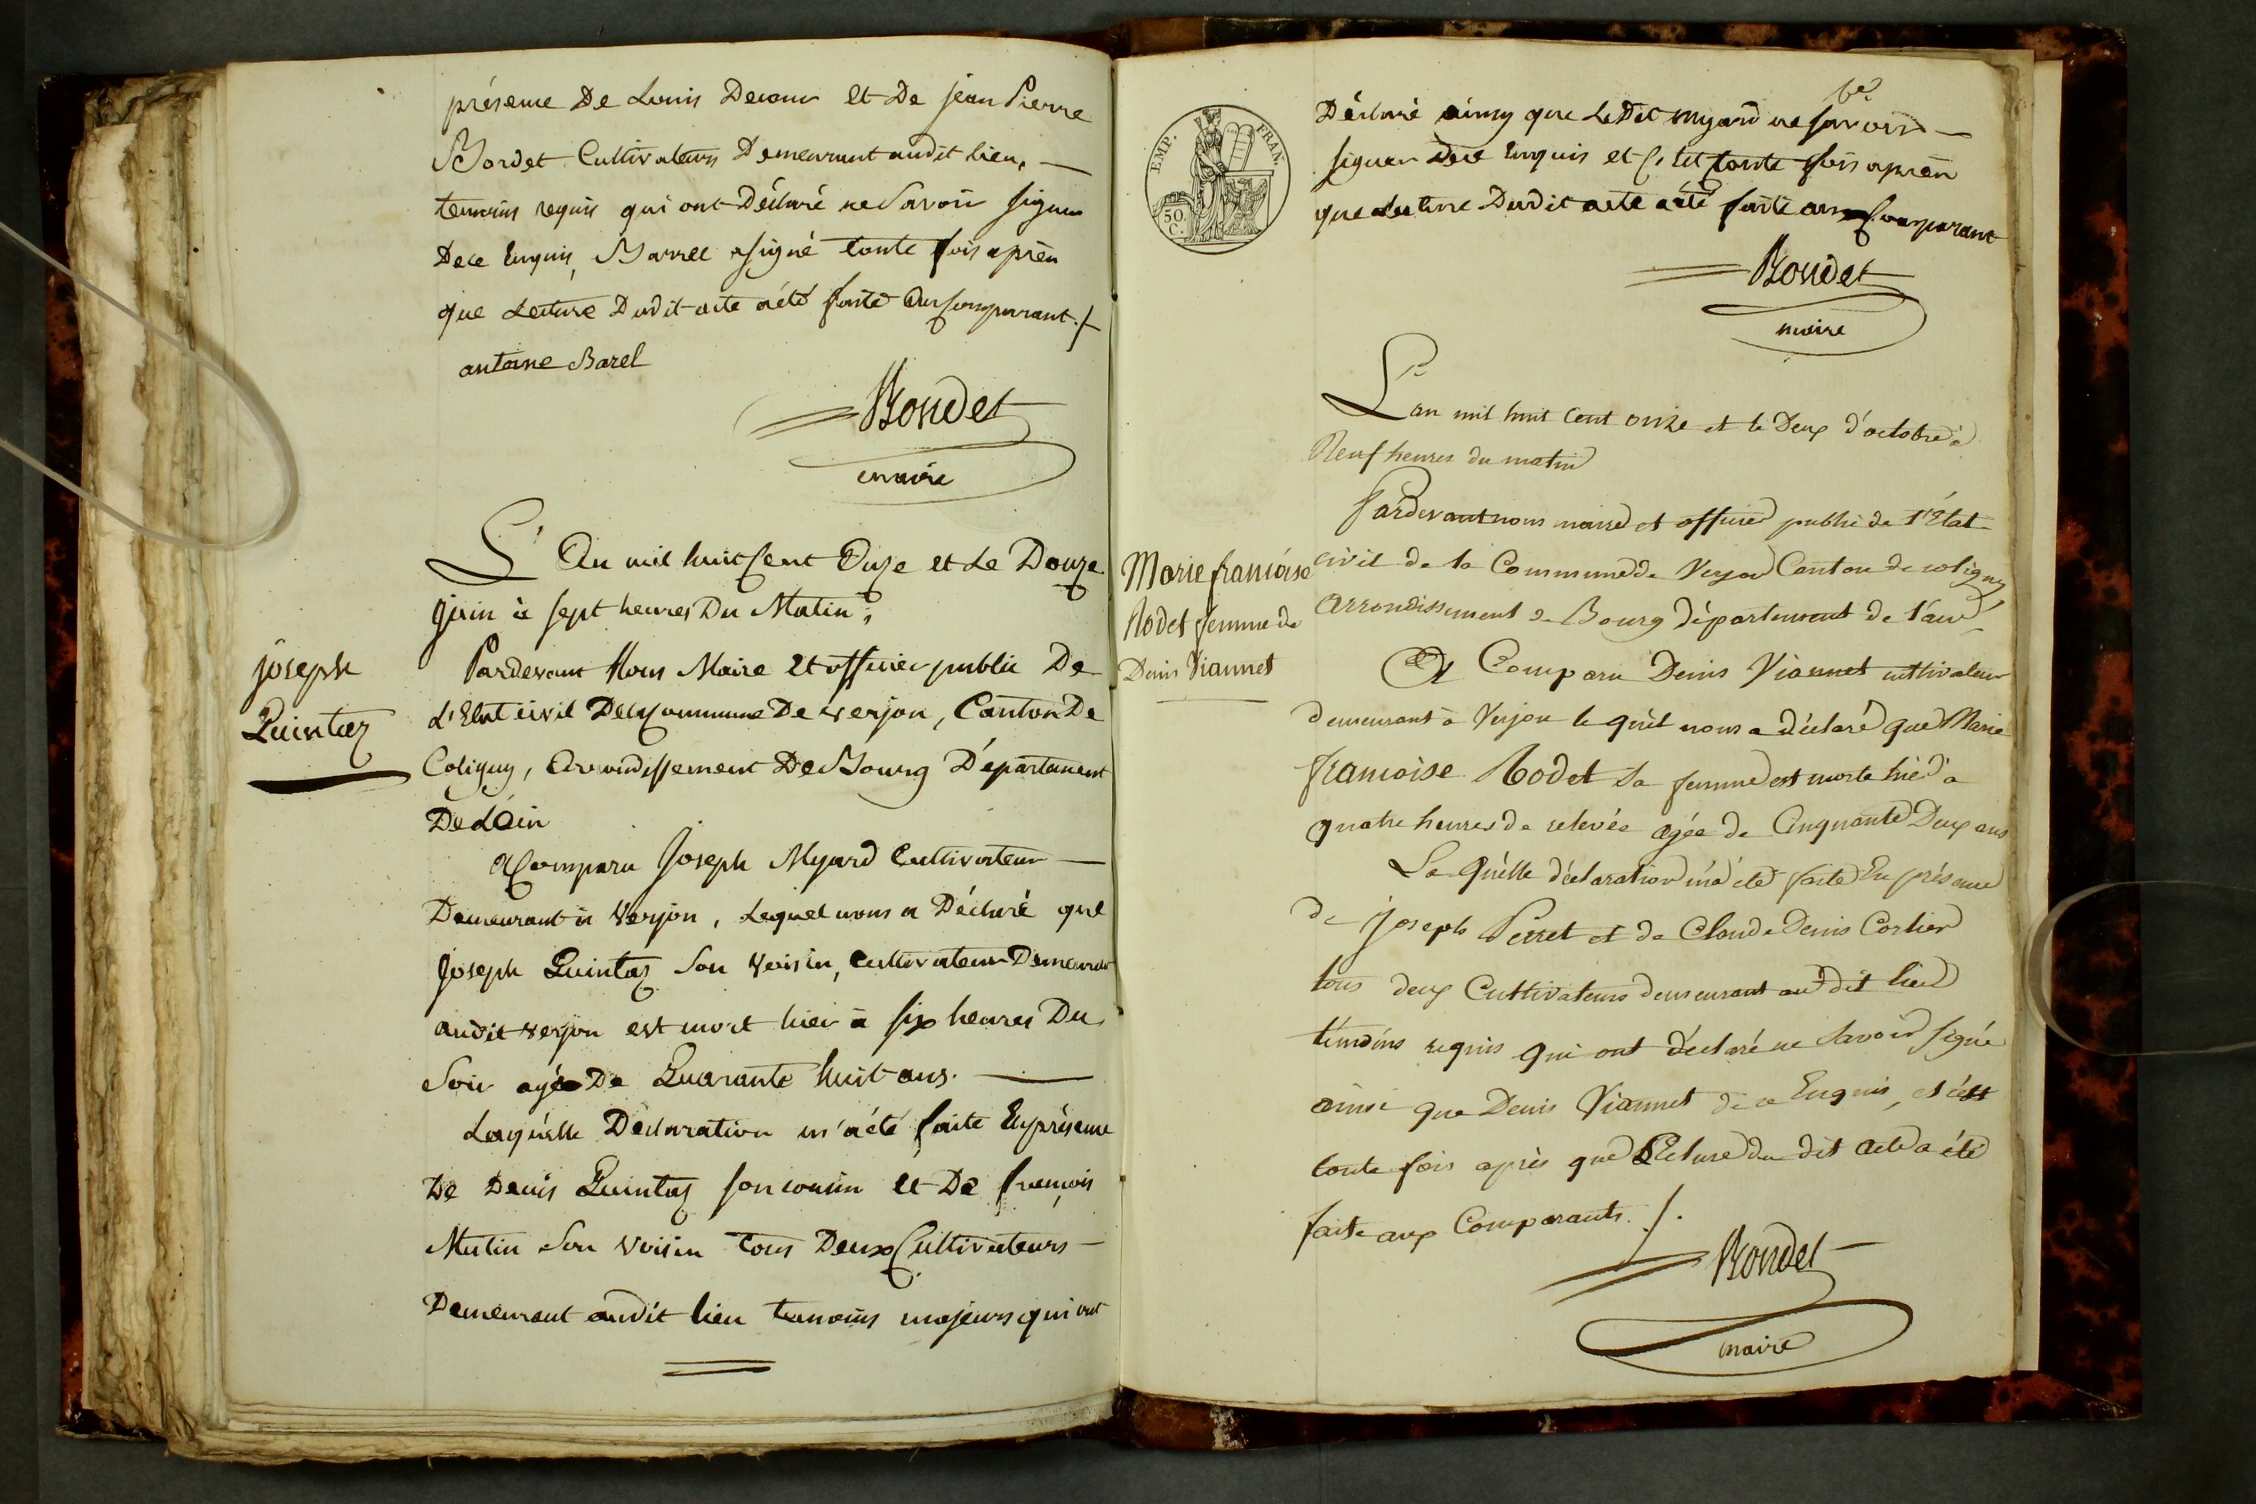 présence De Louis Decour et De jean Pierre
Bordet Cultivateurs Demeurant audit lieu,
temoins requis qui ont Déclaré ne Savoir signer
De ce Enquis, Barrel a signé toute fois après
que Lecture Dudit acte a été faite au Comparant ./.
antoine Barel
Bondet
maire
L'An mil huit Cent Onze et Le Douze
juin à sept heures Du Matin,
joseph
Quintaz
Pardevant Nous Maire et officier public De
L'Etat civil De la Commune De verjon, Canton De
Coligny, Arrondissement De Bourg Département
De L'Ain
A Comparu Joseph Myard Cultivateur
Demeurant à Verjon, Lequel nous a Déclaré que
Joseph Quintaz Son Voisin, Cultivateur Demeurant
audit verjon est mort hier à six heures Du
Soir agé De Quarante huit ans.
Laquelle Déclaration m'a été faite En présence
De Denis Quintaz son cousin et De françois
Mutin Son Voisin Tous Deux Cultivateurs
Demeurant audit lieu temoins majeurs qui ont
EMP. FRAN.
50 C.
Déclaré ainsy que Le Dit myard ne savoir
signer De ce Enquis et C'est toute fois après
que Lecture Dudit acte a été faite aux Comparant
Bondet
maire
L'an mil huit Cent onze et le Deux d'octobre à
Neuf heures du matin
Marie francoise
Rodet femme de
Denis Viannet
Pardevant nous maire et officier public de l'état
civil de la Commune de Verjon Canton de coligny
Arrondissement de Bourg département de l'ain
A Comparu Denis Viannet cultivateur
demeurant à Verjon le quel nous a déclaré que Marie
francoise Rodet Sa femme est morte hié à
quatre heures de relevée agée de Cinquante Deux ans
La quélle déclaration m'a été faite En présence
de Joseph Perret et de Claude Denis Cortier
tous deux Cultivateurs demeurant au dit lieu
témoins requis qui ont déclaré ne Savoir signé
ainsi que Denis Viannet de ce Enquis, et c'est
toute fois après que Lecture du dit acte a été
faite aux Comparants ./.
Bondet
maire